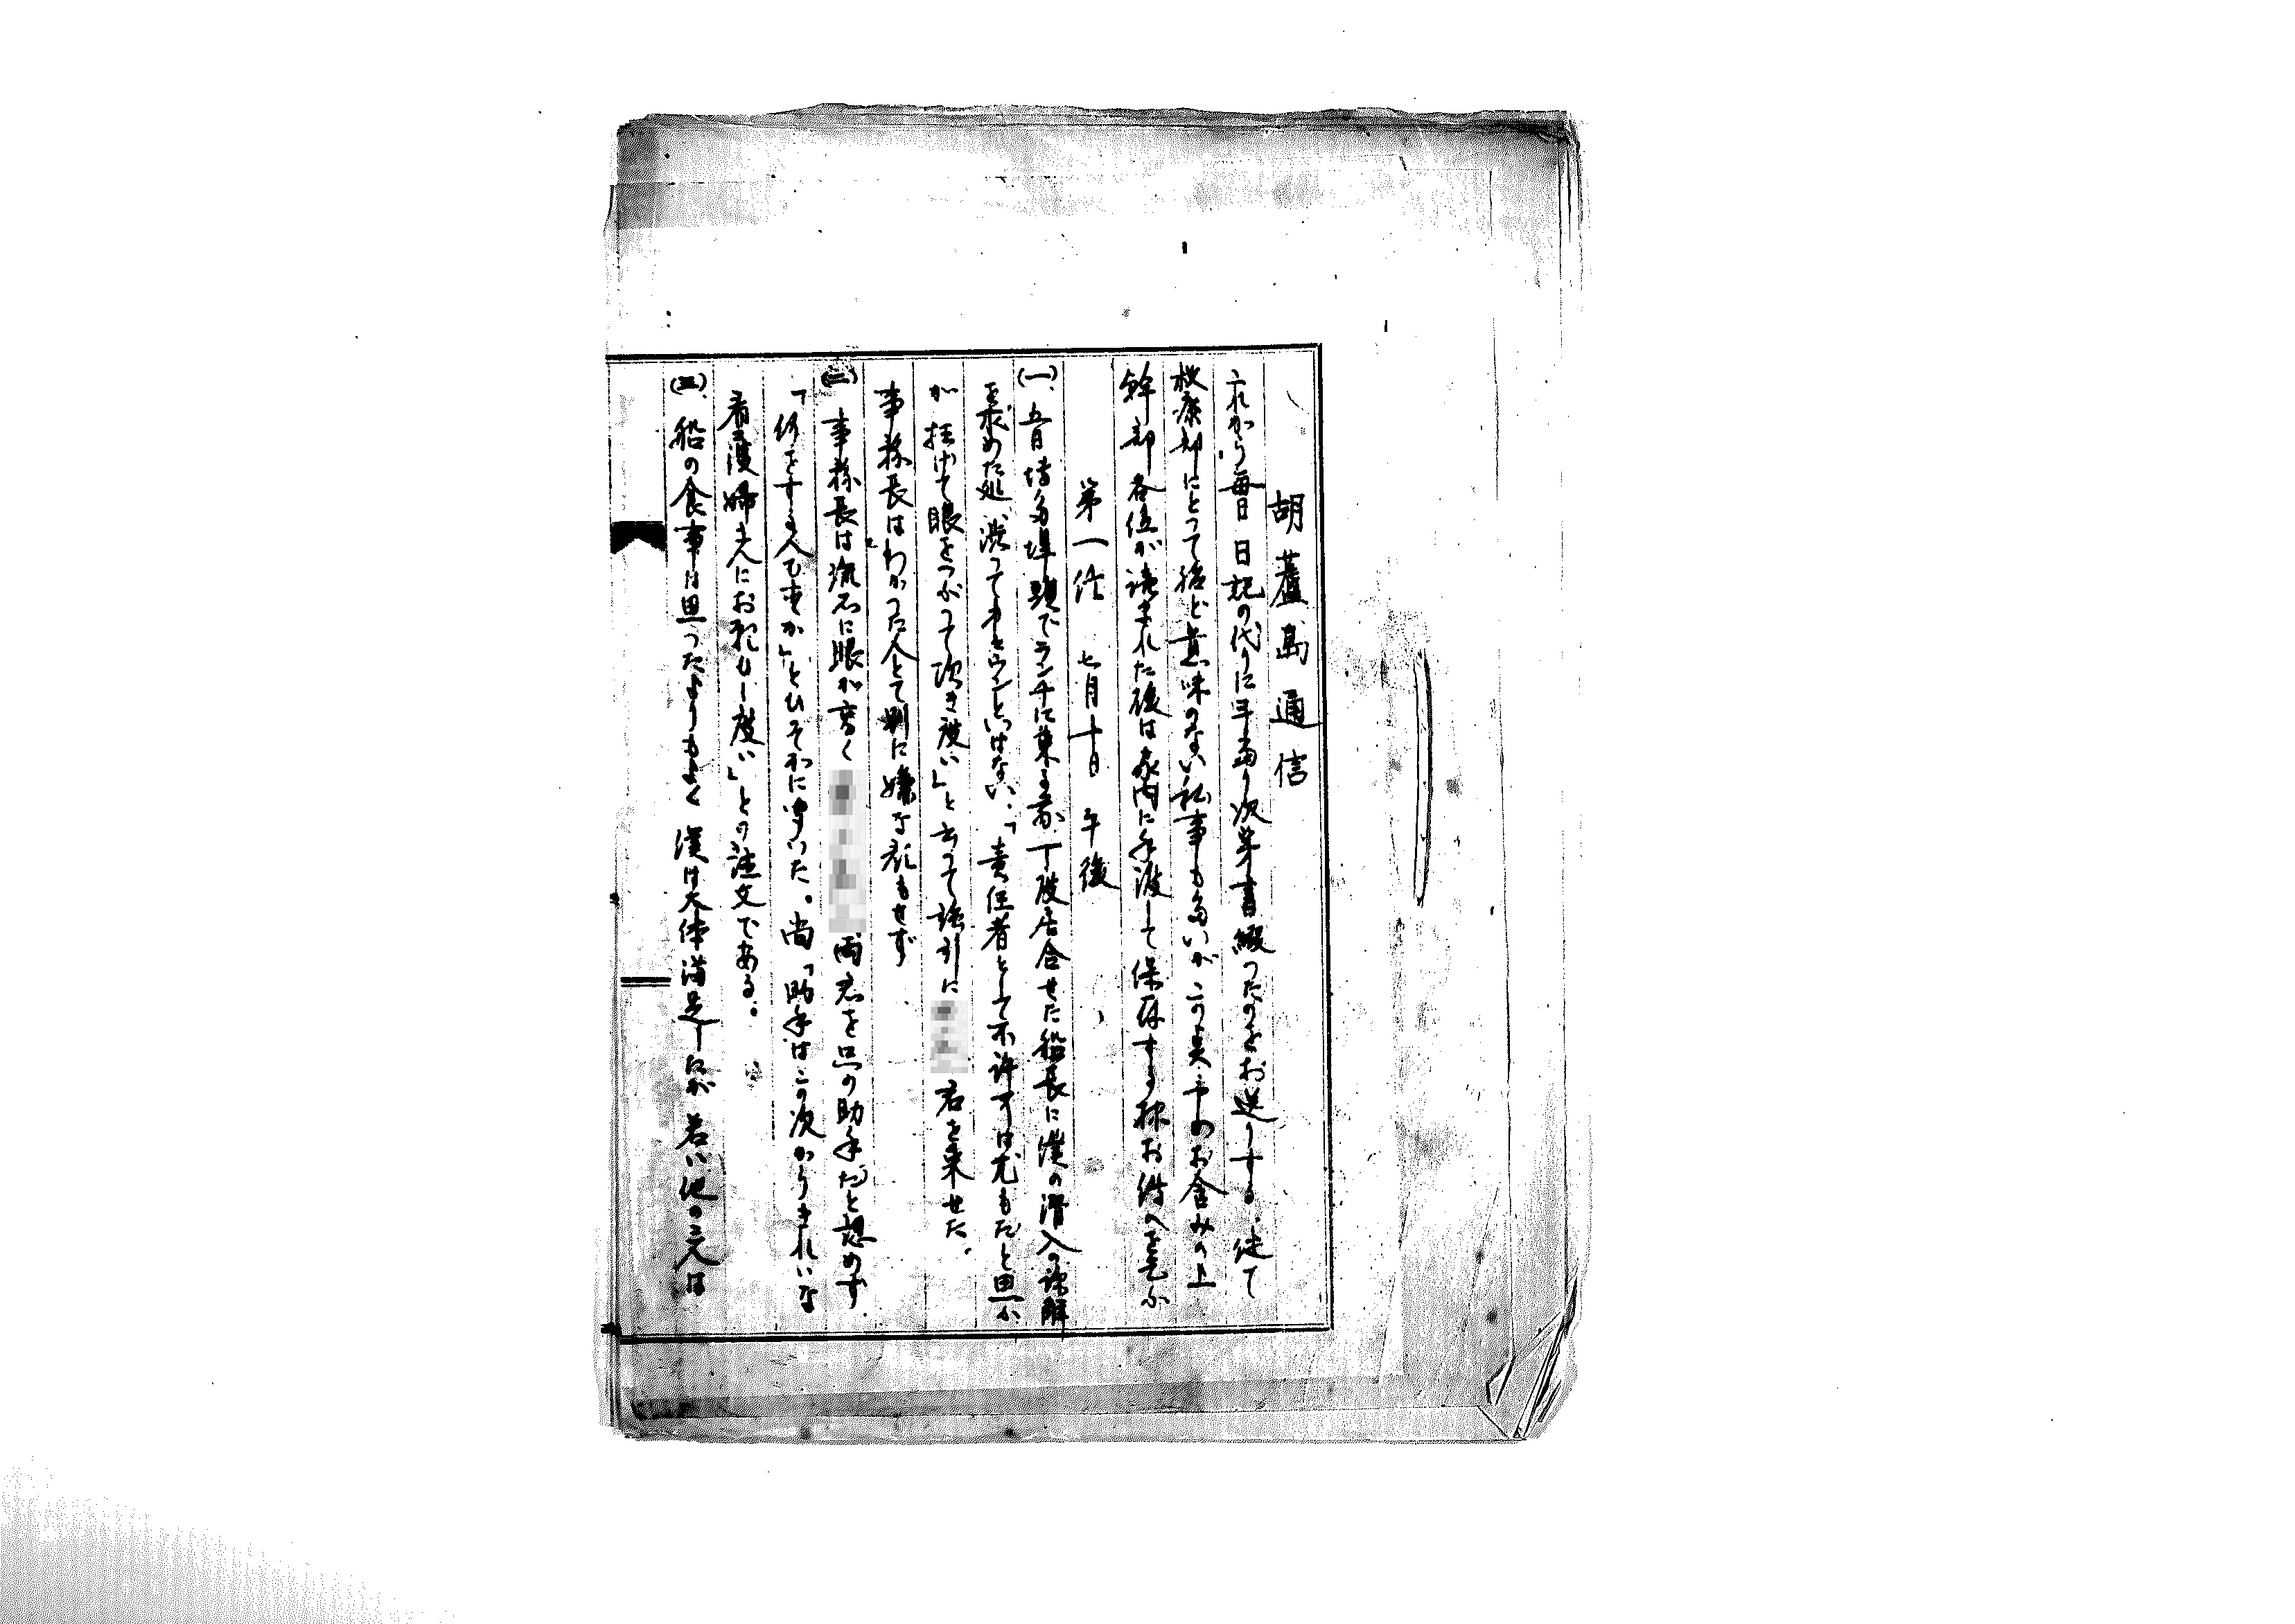 胡蘆島通信
これから毎日日記の代りに手当り次第書綴ったのをお送りする。従て
救療部にとって殆ど意味のない私事も多いがこの点予めお含みの上
幹部各位が読まれた後は家内に手渡して保存する様お伝へを乞ふ
第一信 七月十日 午後
(一)、五日博多埠頭でランチに乗る前、丁度居合せた船長に僕の潜入の諒解
を求めた処、渋って中々ウンといはない。「責任者として不許可は尤もだと思ふ
が枉げて眼をつぶって頂き度い」と云って強引に
君を乗せた。
事務長はわかった人とて別に嫌な顔もせず
(二) 事務長は流石に眼が高く
両君を只の助手だと認めず、
「何をする人ですか」とひそかに、いた。尚「助手はこの次からきれいな
看護婦さんにお願ひし度い」との注文である。
(三)、船の食事は思ったよりもよく僕は大体満足したが若い他の三人は